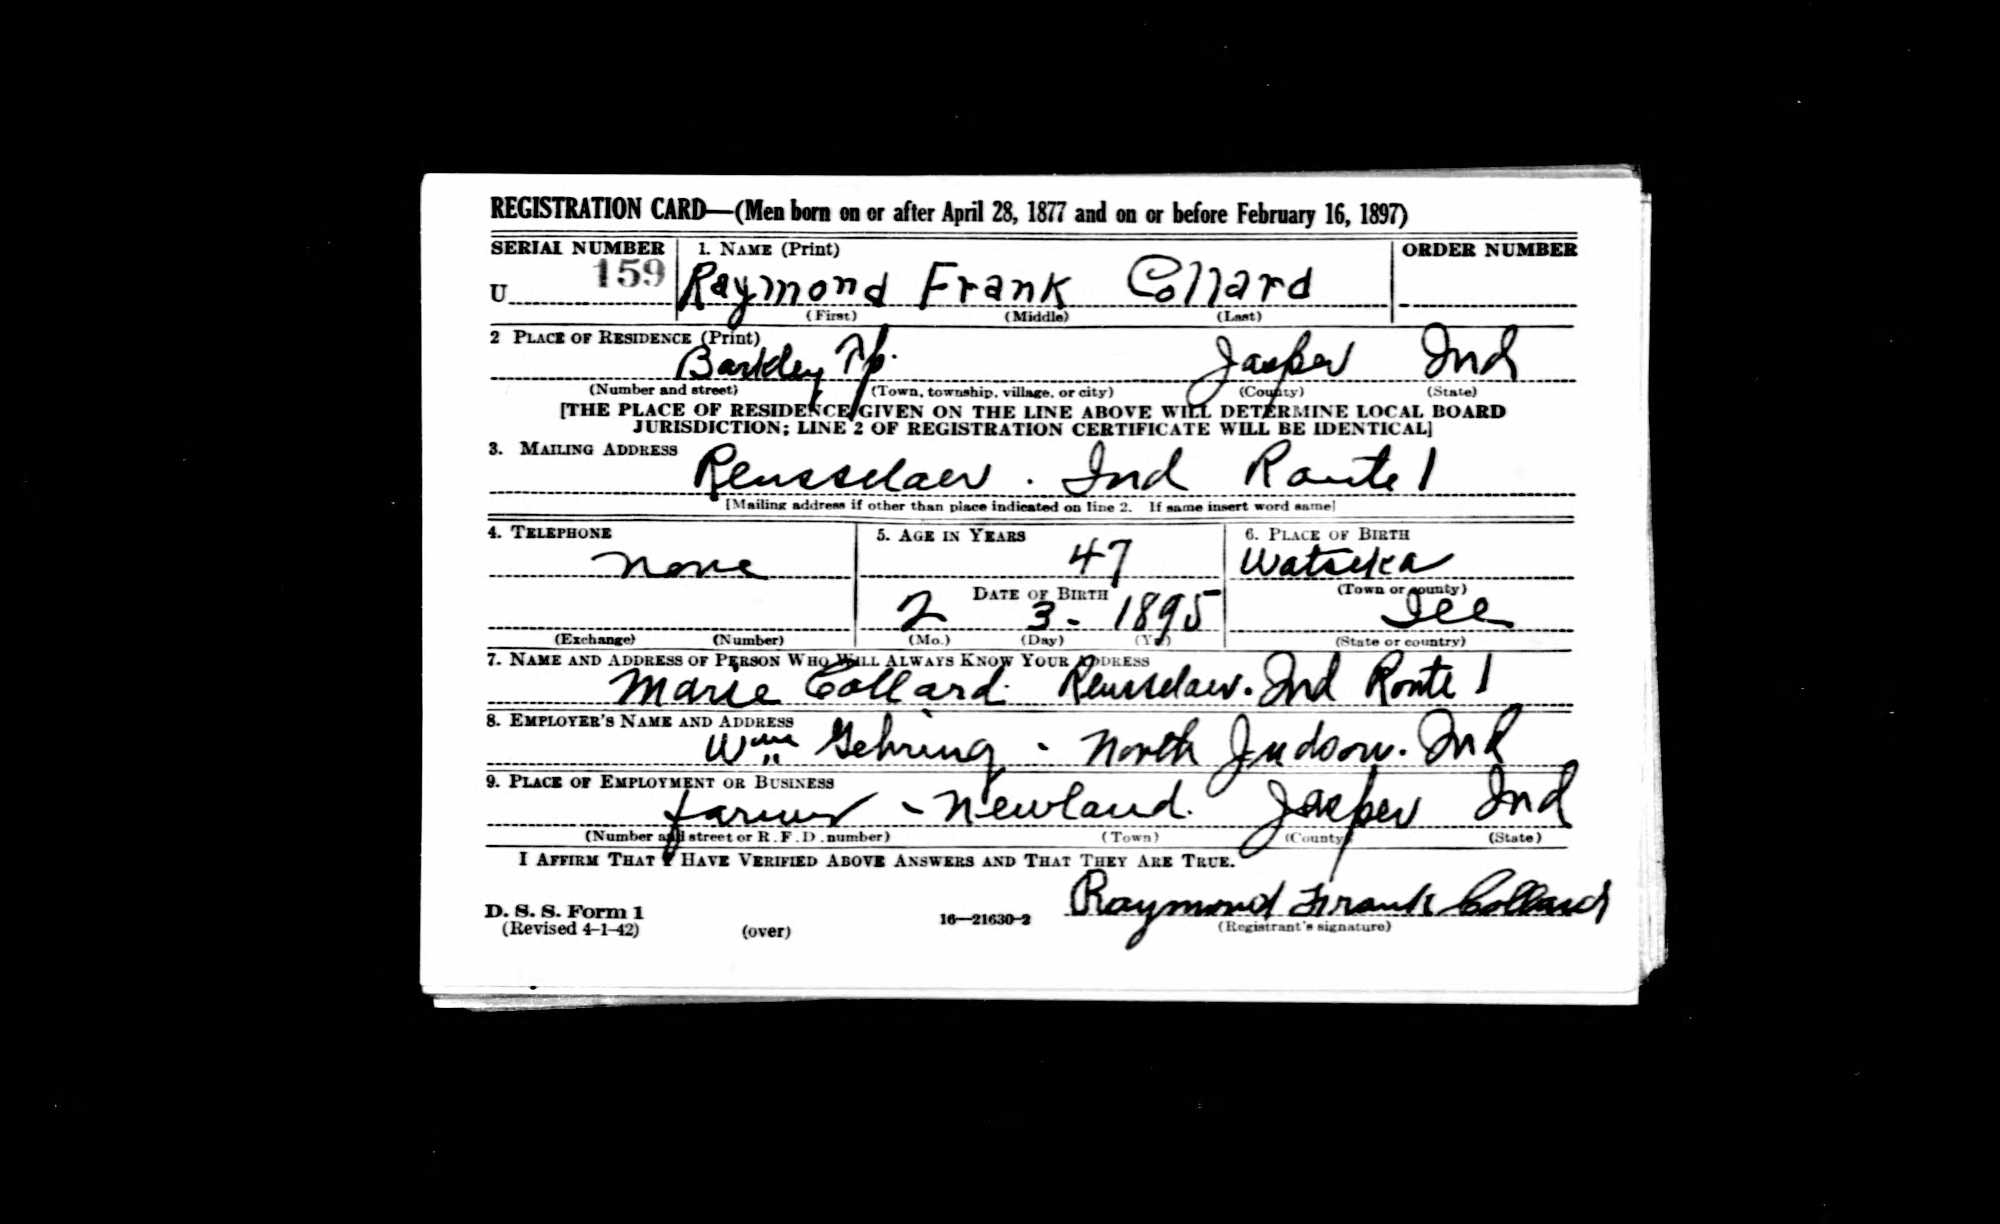 REGISTRATION CARD—(Men born on or after April 28, 1877 and on or before February 16, 1897)
SERIAL NUMBER 1. NAME (Print) ORDER NUMBER
U 159 Raymond Frank Collard
(First) (Middle) (Last)
2 PLACE OF RESIDENCE (Print)
Barkley Tp. Jasper Ind
(Number and street) (Town, township, village, or city) (County) (State)
[THE PLACE OF RESIDENCE GIVEN ON THE LINE ABOVE WILL DETERMINE LOCAL BOARD
JURISDICTION; LINE 2 OF REGISTRATION CERTIFICATE WILL BE IDENTICAL]
3. MAILING ADDRESS
Rensselaer . Ind Route 1
[Mailing address if other than place indicated on line 2. If same insert word same]
4. TELEPHONE 5. AGE IN YEARS 6. PLACE OF BIRTH
none 47 Watseka
DATE OF BIRTH (Town or county)
2 3 - 1895 Ill
(Exchange) (Number) (Mo.) (Day) (Yr.) (State or country)
7. NAME AND ADDRESS OF PERSON WHO WILL ALWAYS KNOW YOUR ADDRESS
Marie Collard. Rensselaer. Ind Route 1
8. EMPLOYER'S NAME AND ADDRESS
Wm Gehring - North Judson. Ind
9. PLACE OF EMPLOYMENT OR BUSINESS
farmer - Newland. Jasper Ind
(Number and street or R. F. D. number) (Town) (County) (State)
I AFFIRM THAT I HAVE VERIFIED ABOVE ANSWERS AND THAT THEY ARE TRUE.
Raymond Frank Collard
D. S. S. Form 1 16—21630-2 (Registrant's signature)
(Revised 4-1-42) (over)